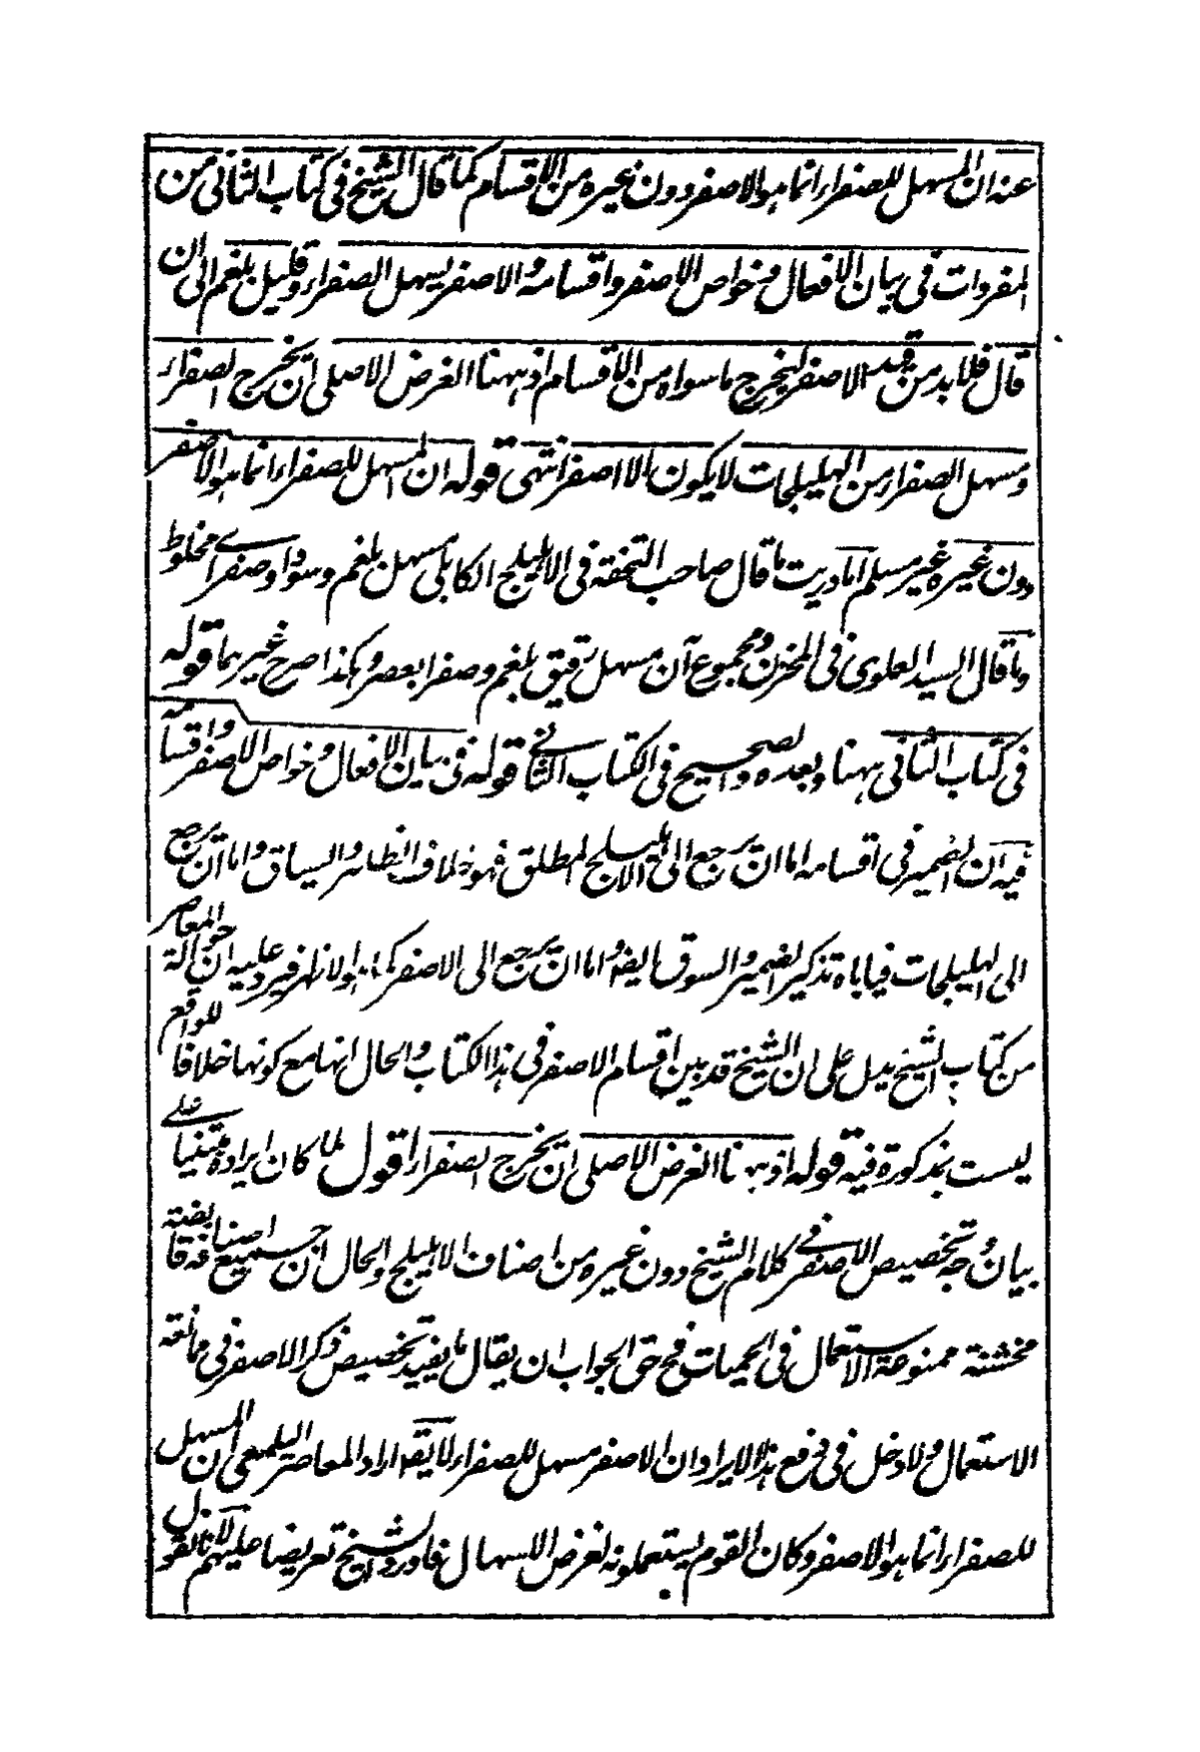 عنه ان المسهل للصفراء انما هو الاصفر دون غيره من الاقسام كما قال الشيخ فى كتاب الثانى من
المفردات فى بيان الافعال وخواص الاصفر واقسامه والاصفر يسهل الصفراء وقليل بلغم الى ان
قال فلا بد من قيد الاصفر ليخرج ما سواه من الاقسام اذ ههنا الغرض الاصلى ان يخرج الصفراء
ومسهل الصفراء من الهليلجات لا يكون الا اصفر انتهى قوله ان المسهل للصفراء انما هو الاصفر
دون غيره غير مسلم اما دريت ما قال صاحب التحفة فى الاهليلج الكابلى مسهل بلغم وسودا وصفراى مخلوط
وما قال السيد العلوى فى المخزن ومجموع آن مسهل رقيق بلغم وصفرا بعصر وهكذا صرح غيرهما قوله
فى كتاب الثانى ههنا وبعده والصحيح فى الكتاب الثانى قوله فى بيان الافعال وخواص الاصفر واقسامه
فيه ان الضمير فى اقسامه اما ان يرجع الى الاهليلج المطلق فهو خلاف الظاهر والسياق واما ان يرجع
الى الهليلجات فياباه تذكير الضمير والسوق ايضه واما ان يرجع الى الاصفر كما هو الاظهر فيرد عليه ان حوالة المعاصر
من كتاب الشيخ يدل على ان الشيخ قد بين اقسام الاصفر فى هذا الكتاب والحال انها مع كونها خلافا للواقع
ليست بمذكورة فيه قوله اذ ههنا الغرض الاصلى ان يخرج الصفراء اقول لما كان ايراده مبتنيا على
بيان وجه تخصيص الاصفر فى كلام الشيخ دون غيره من اصناف الاهليلج والحال ان جميع اصنافه قابضة
مخشنة ممنوعة الاستعمال فى الحميات فح حق الجواب ان يقال ما يفيد تخصيص ذكر الاصفر فى ممانعة
الاستعمال ولا دخل فى دفع هذا الايراد ان الاصفر مسهل للصفراء لا يقه اراد المعاصر اليلمعى ان المسهل
للصفراء انما هو الاصفر وكان القوم يستعملونه لغرض الاسهال فاورد الشيخ تعريضا عليهم لانا نقول